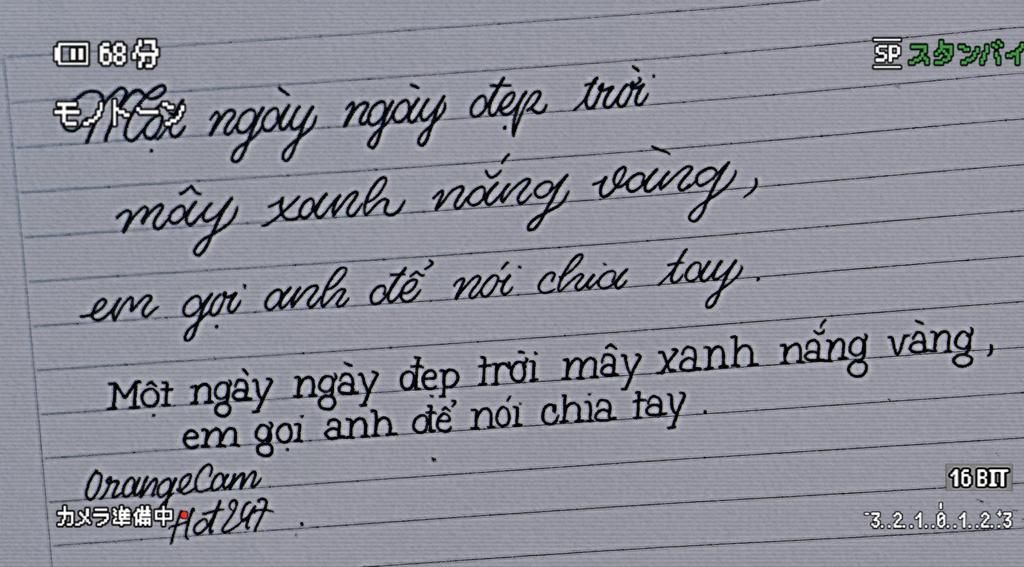 68分
SP スタンバイ
モノトーン
Một ngày ngày đẹp trời
mây xanh nắng vàng,
em gọi anh để nói chia tay.
Một ngày ngày đẹp trời mây xanh nắng vàng,
em gọi anh để nói chia tay.
OrangeCam
16BIT
カメラ準備中
Hot247.
-3..2..1..0..1..2..+3